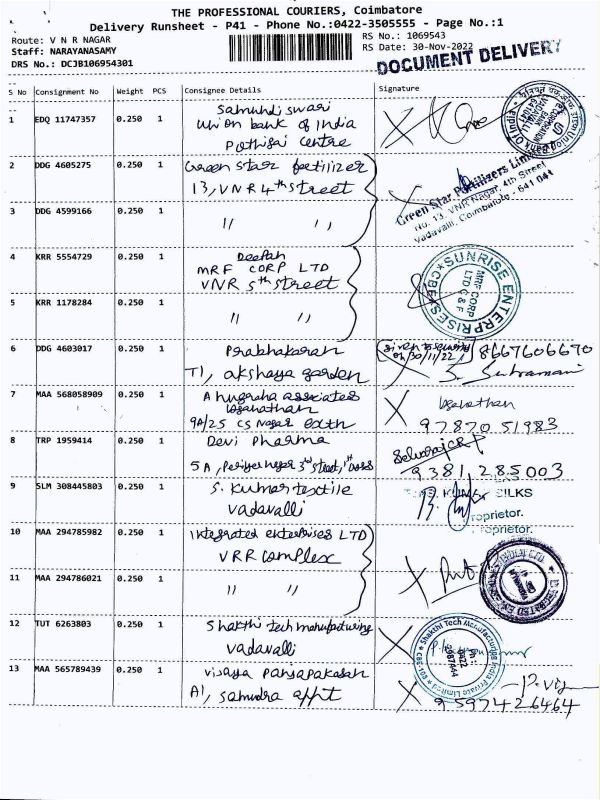 THE PROFESSIONAL COURIERS, Coimbatore
Delivery Runsheet - P41 - Phone No.:0422-3505555 - Page No.:1
Route: V N R NAGAR
RS No.: 1069543
Staff: NARAYANASAMY
RS Date: 30-Nov-2022
DRS No.: DCJB106954301
DOCUMENT DELIVERY
S No Consignment No Weight PCS Consignee Details Signature
1 EDQ 11747357 0.250 1
union bank of India
Pothigai centre
2 DDG 4605275 0.250 1 Green star fertilizer
13, VNR 4th street
Green Star Fertilizers Limited
No. 13, VNR Nagar, 4th Street
Vadavalli, Coimbatore - 641 041
3 DDG 4599166 0.250 1 " "
4 KRR 5554729 0.250 1 Deepan
MRF CORP LTD
VNR 5th street
SUNRISE ENTERPRISES
MRF CORP
LTD C & F
CBE
5 KRR 1178284 0.250 1 " "
6 DDG 4603017 0.250 1 Prabhakaran
T1, akshaya garden
Given to security
on 30/11/22
8667606670
7 MAA 568058909 0.250 1 Anugraha associates
9A/25 CS Nagar
97870 51983
8 TRP 1959414 0.250 1 Devi Pharma
5A, 3rd street, 1st
Selvaraj
9381285003
9 SLM 308445803 0.250 1 S. Kumar textile
vadavalli
SILKS
roprietor.
roprietor.
10 MAA 294785982 0.250 1 Integrated enterprises LTD
VRR complex
11 MAA 294786021 0.250 1 " "
12 TUT 6263803 0.250 1 Shakthi tech manufacturing
vadavalli
Shakthi Tech Manufacturing India Private Limited
13 MAA 565789439 0.250 1 vijaya
A1, samudra appt
9597426464